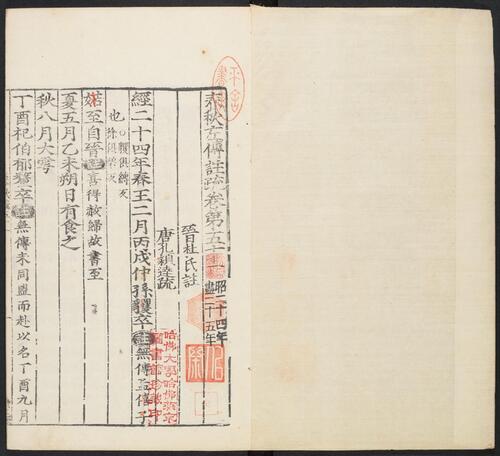 春秋左傳註疏卷第五十一 昭二十四年
盡二十五年
晉杜氏註
唐孔穎達疏
經二十四年春王二月丙戌仲孫貜卒註無傳孟僖子
也○貜俱縛反
徐俱碧反
婼至自晉註喜得赦歸故書至
夏五月乙未朔日有食之
秋八月大雩
丁酉杞伯郁釐卒註無傳未同盟而赴以名丁酉九月
哈佛大學哈佛燕京
圖書館珍藏印